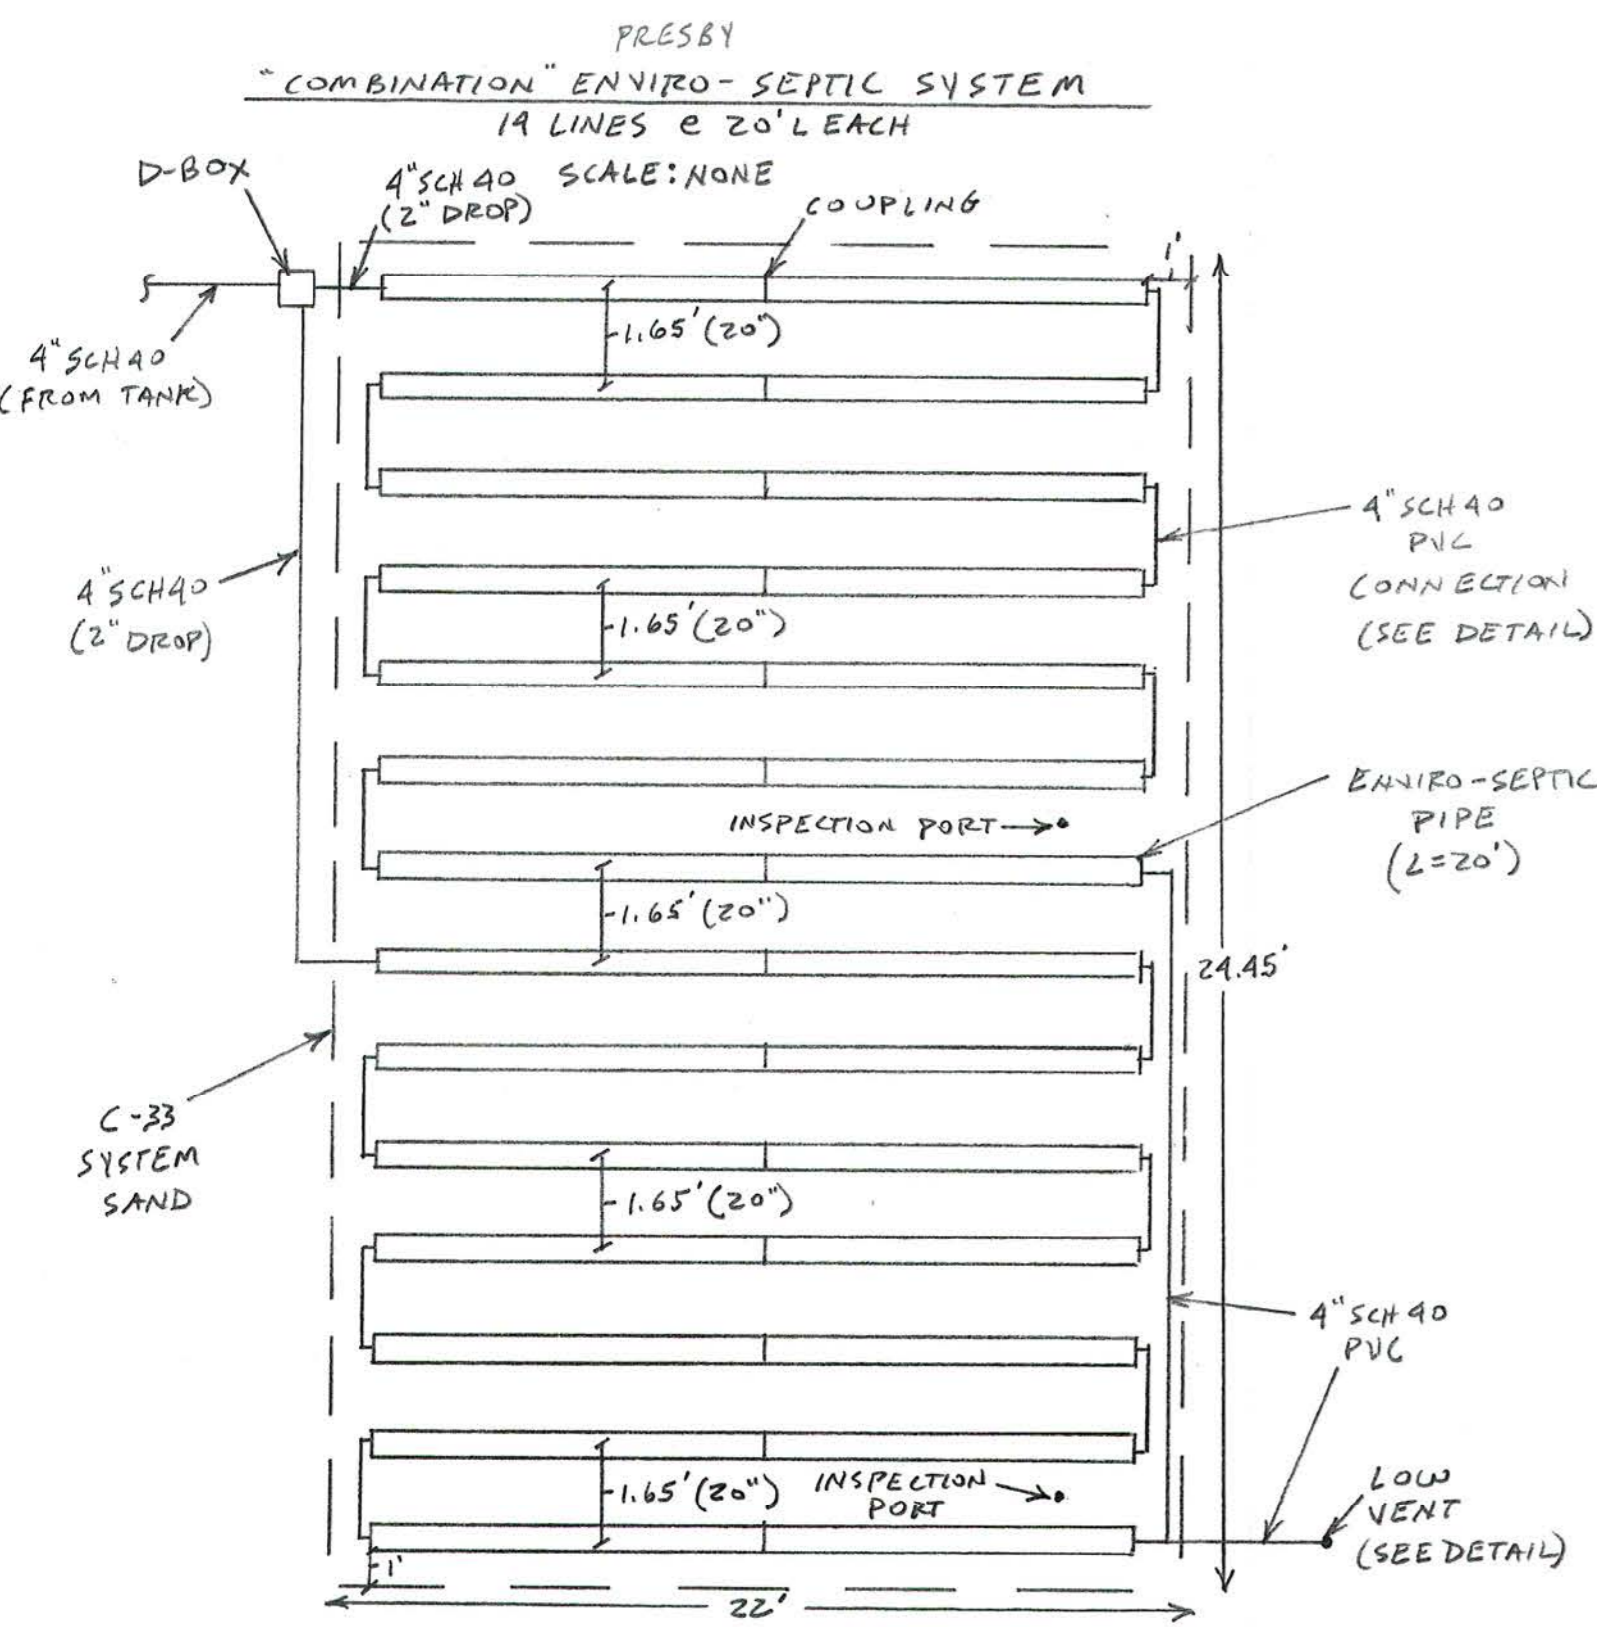 PRESBY
"COMBINATION" ENVIRO-SEPTIC SYSTEM
14 LINES @ 20'L EACH
SCALE: NONE
D-BOX
4" SCH 40
(2" DROP)
COUPLING
1'
1.65' (20")
4" SCH 40
(FROM TANK)
4" SCH 40
PVC
CONNECTION
(SEE DETAIL)
4" SCH 40
(2" DROP)
1.65' (20")
ENVIRO-SEPTIC
PIPE
(L=20')
INSPECTION PORT
1.65' (20")
24.45'
C-33
SYSTEM
SAND
1.65' (20")
4" SCH 40
PVC
1.65' (20")
INSPECTION
PORT
LOW
VENT
(SEE DETAIL)
1'
22'